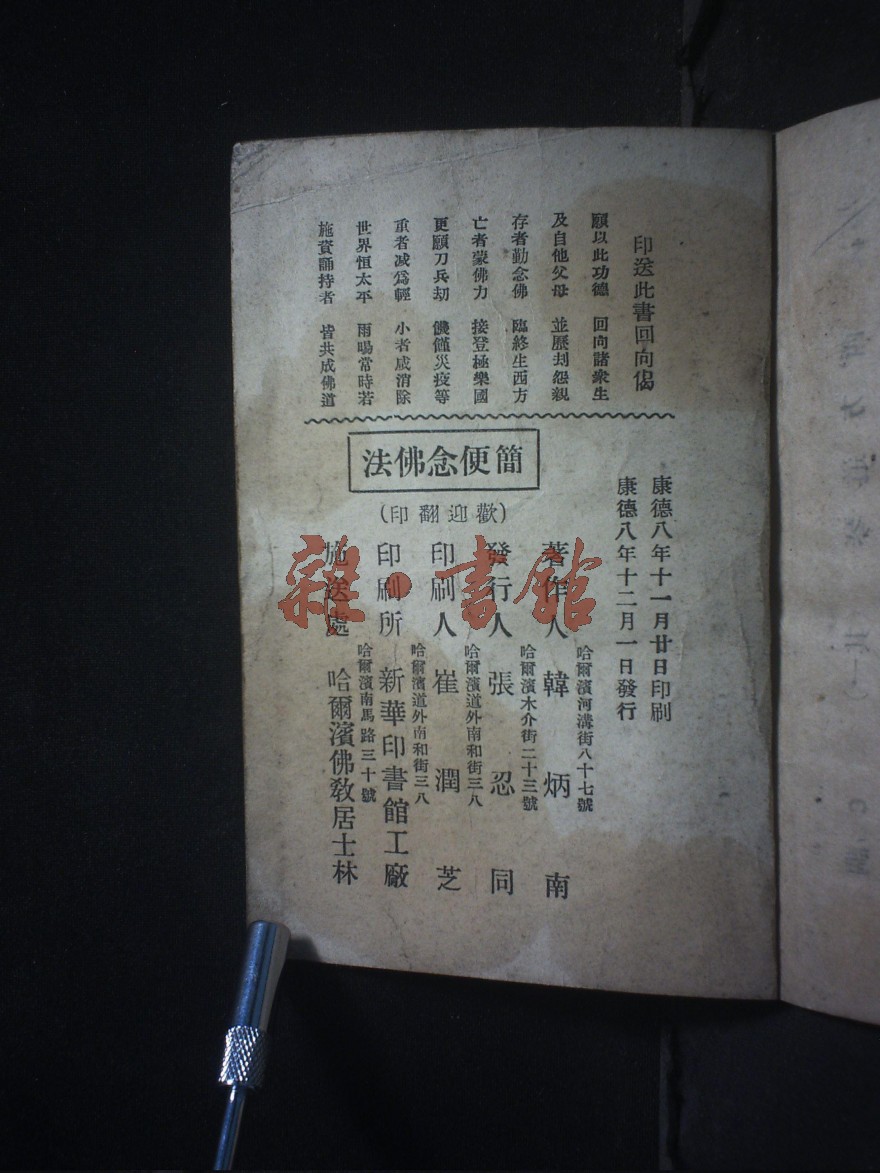 印送此書回向偈
願以此功德 回向諸衆生
及自他父母 並歷刦怨親
存者勤念佛 臨終生西方
亡者蒙佛力 接登極樂國
更願刀兵劫 饑饉災疫等
重者减爲輕 小者咸消除
世界恒太平 雨暘常時若
施資誦持者 皆共成佛道
簡便念佛法
(歡迎翻印)
康德八年十一月廿日印刷
康德八年十二月一日發行
哈爾濱河溝街八十七號
著作人 韓炳南
哈爾濱木介街二十三號
發行人 張忍同
哈爾濱道外南和街三八
印刷人 崔潤芝
哈爾濱道外南和街三八
印刷所 新華印書館工廠
哈爾濱南馬路三十號
施送處 哈爾濱佛敎居士林
雜·書館